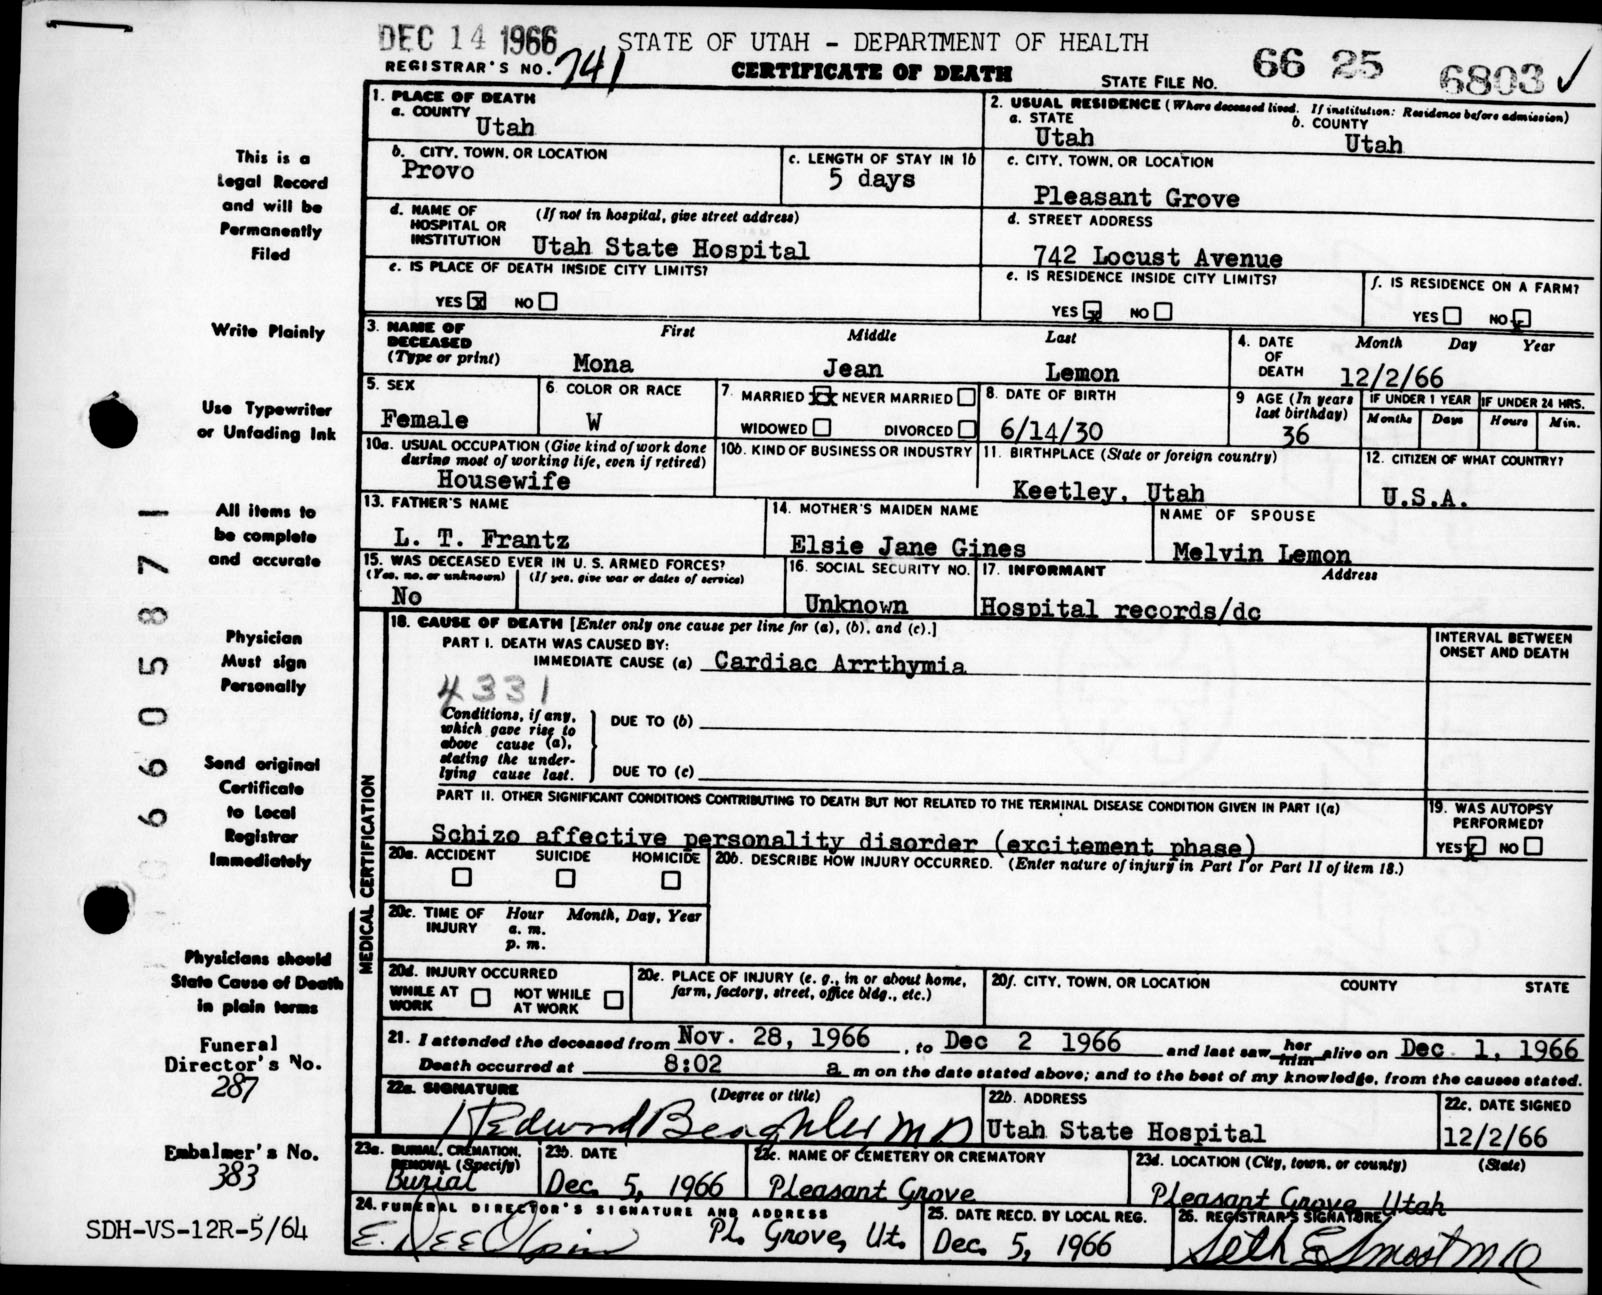 DEC 14 1966 STATE OF UTAH - DEPARTMENT OF HEALTH
REGISTRAR'S NO. 741 CERTIFICATE OF DEATH STATE FILE NO. 66 25 6803 ✓
This is a
Legal Record
and will be
Permanently
Filed
Write Plainly
Use Typewriter
or Unfading Ink
All items to
be complete
and accurate
Physician
Must sign
Personally
Send original
Certificate
to Local
Registrar
Immediately
Physicians should
State Cause of Death
in plain terms
Funeral
Director's No.
287
Embalmer's No.
383
SDH-VS-12R-5/64
1. PLACE OF DEATH
a. COUNTY
Utah
2. USUAL RESIDENCE (Where deceased lived. If institution: Residence before admission)
a. STATE b. COUNTY
Utah Utah
b. CITY, TOWN, OR LOCATION
Provo
c. LENGTH OF STAY IN 1b
5 days
c. CITY, TOWN, OR LOCATION
Pleasant Grove
d. NAME OF HOSPITAL OR INSTITUTION (If not in hospital, give street address)
Utah State Hospital
d. STREET ADDRESS
742 Locust Avenue
e. IS PLACE OF DEATH INSIDE CITY LIMITS?
YES X NO
e. IS RESIDENCE INSIDE CITY LIMITS?
YES X NO
f. IS RESIDENCE ON A FARM?
YES NO X
3. NAME OF DECEASED (Type or print) First Middle Last
Mona Jean Lemon
4. DATE OF DEATH Month Day Year
12/2/66
5. SEX
Female
6. COLOR OR RACE
W
7. MARRIED XX NEVER MARRIED
WIDOWED DIVORCED
8. DATE OF BIRTH
6/14/30
9 AGE (In years last birthday)
36
IF UNDER 1 YEAR IF UNDER 24 HRS.
Months Days Hours Min.
10a. USUAL OCCUPATION (Give kind of work done
during most of working life, even if retired)
Housewife
10b. KIND OF BUSINESS OR INDUSTRY
11. BIRTHPLACE (State or foreign country)
Keetley, Utah
12. CITIZEN OF WHAT COUNTRY?
U.S.A.
13. FATHER'S NAME
L. T. Frantz
14. MOTHER'S MAIDEN NAME
Elsie Jane Gines
NAME OF SPOUSE
Melvin Lemon
15. WAS DECEASED EVER IN U. S. ARMED FORCES?
(Yes, no, or unknown) (If yes, give war or dates of service)
No
16. SOCIAL SECURITY NO.
Unknown
17. INFORMANT Address
Hospital records/dc
MEDICAL CERTIFICATION
18. CAUSE OF DEATH [Enter only one cause per line for (a), (b), and (c).]
PART I. DEATH WAS CAUSED BY:
IMMEDIATE CAUSE (a) Cardiac Arrthymia
INTERVAL BETWEEN
ONSET AND DEATH
4331
Conditions, if any,
which gave rise to
above cause (a),
stating the under-
lying cause last.
DUE TO (b)
DUE TO (c)
PART II. OTHER SIGNIFICANT CONDITIONS CONTRIBUTING TO DEATH BUT NOT RELATED TO THE TERMINAL DISEASE CONDITION GIVEN IN PART I(a)
Schizo affective personality disorder (excitement phase)
19. WAS AUTOPSY
PERFORMED?
YES X NO
20a. ACCIDENT SUICIDE HOMICIDE
20b. DESCRIBE HOW INJURY OCCURRED. (Enter nature of injury in Part I or Part II of item 18.)
20c. TIME OF INJURY Hour Month, Day, Year
a. m.
p. m.
20d. INJURY OCCURRED
WHILE AT WORK NOT WHILE AT WORK
20e. PLACE OF INJURY (e. g., in or about home,
farm, factory, street, office bldg., etc.)
20f. CITY, TOWN, OR LOCATION COUNTY STATE
21. I attended the deceased from Nov. 28, 1966, to Dec 2 1966 and last saw her him alive on Dec 1, 1966
Death occurred at 8:02 a m on the date stated above; and to the best of my knowledge, from the causes stated.
22a. SIGNATURE (Degree or title)
Edward Beaghler MD
22b. ADDRESS
Utah State Hospital
22c. DATE SIGNED
12/2/66
23a. BURIAL, CREMATION,
REMOVAL (Specify)
Burial
23b. DATE
Dec. 5, 1966
23c. NAME OF CEMETERY OR CREMATORY
Pleasant Grove
23d. LOCATION (City, town, or county) (State)
Pleasant Grove, Utah
24. FUNERAL DIRECTOR'S SIGNATURE AND ADDRESS
E. Dee Olpin Pl. Grove, Ut.
25. DATE RECD. BY LOCAL REG.
Dec. 5, 1966
26. REGISTRAR'S SIGNATURE
Seth E Smoot MD
6605871